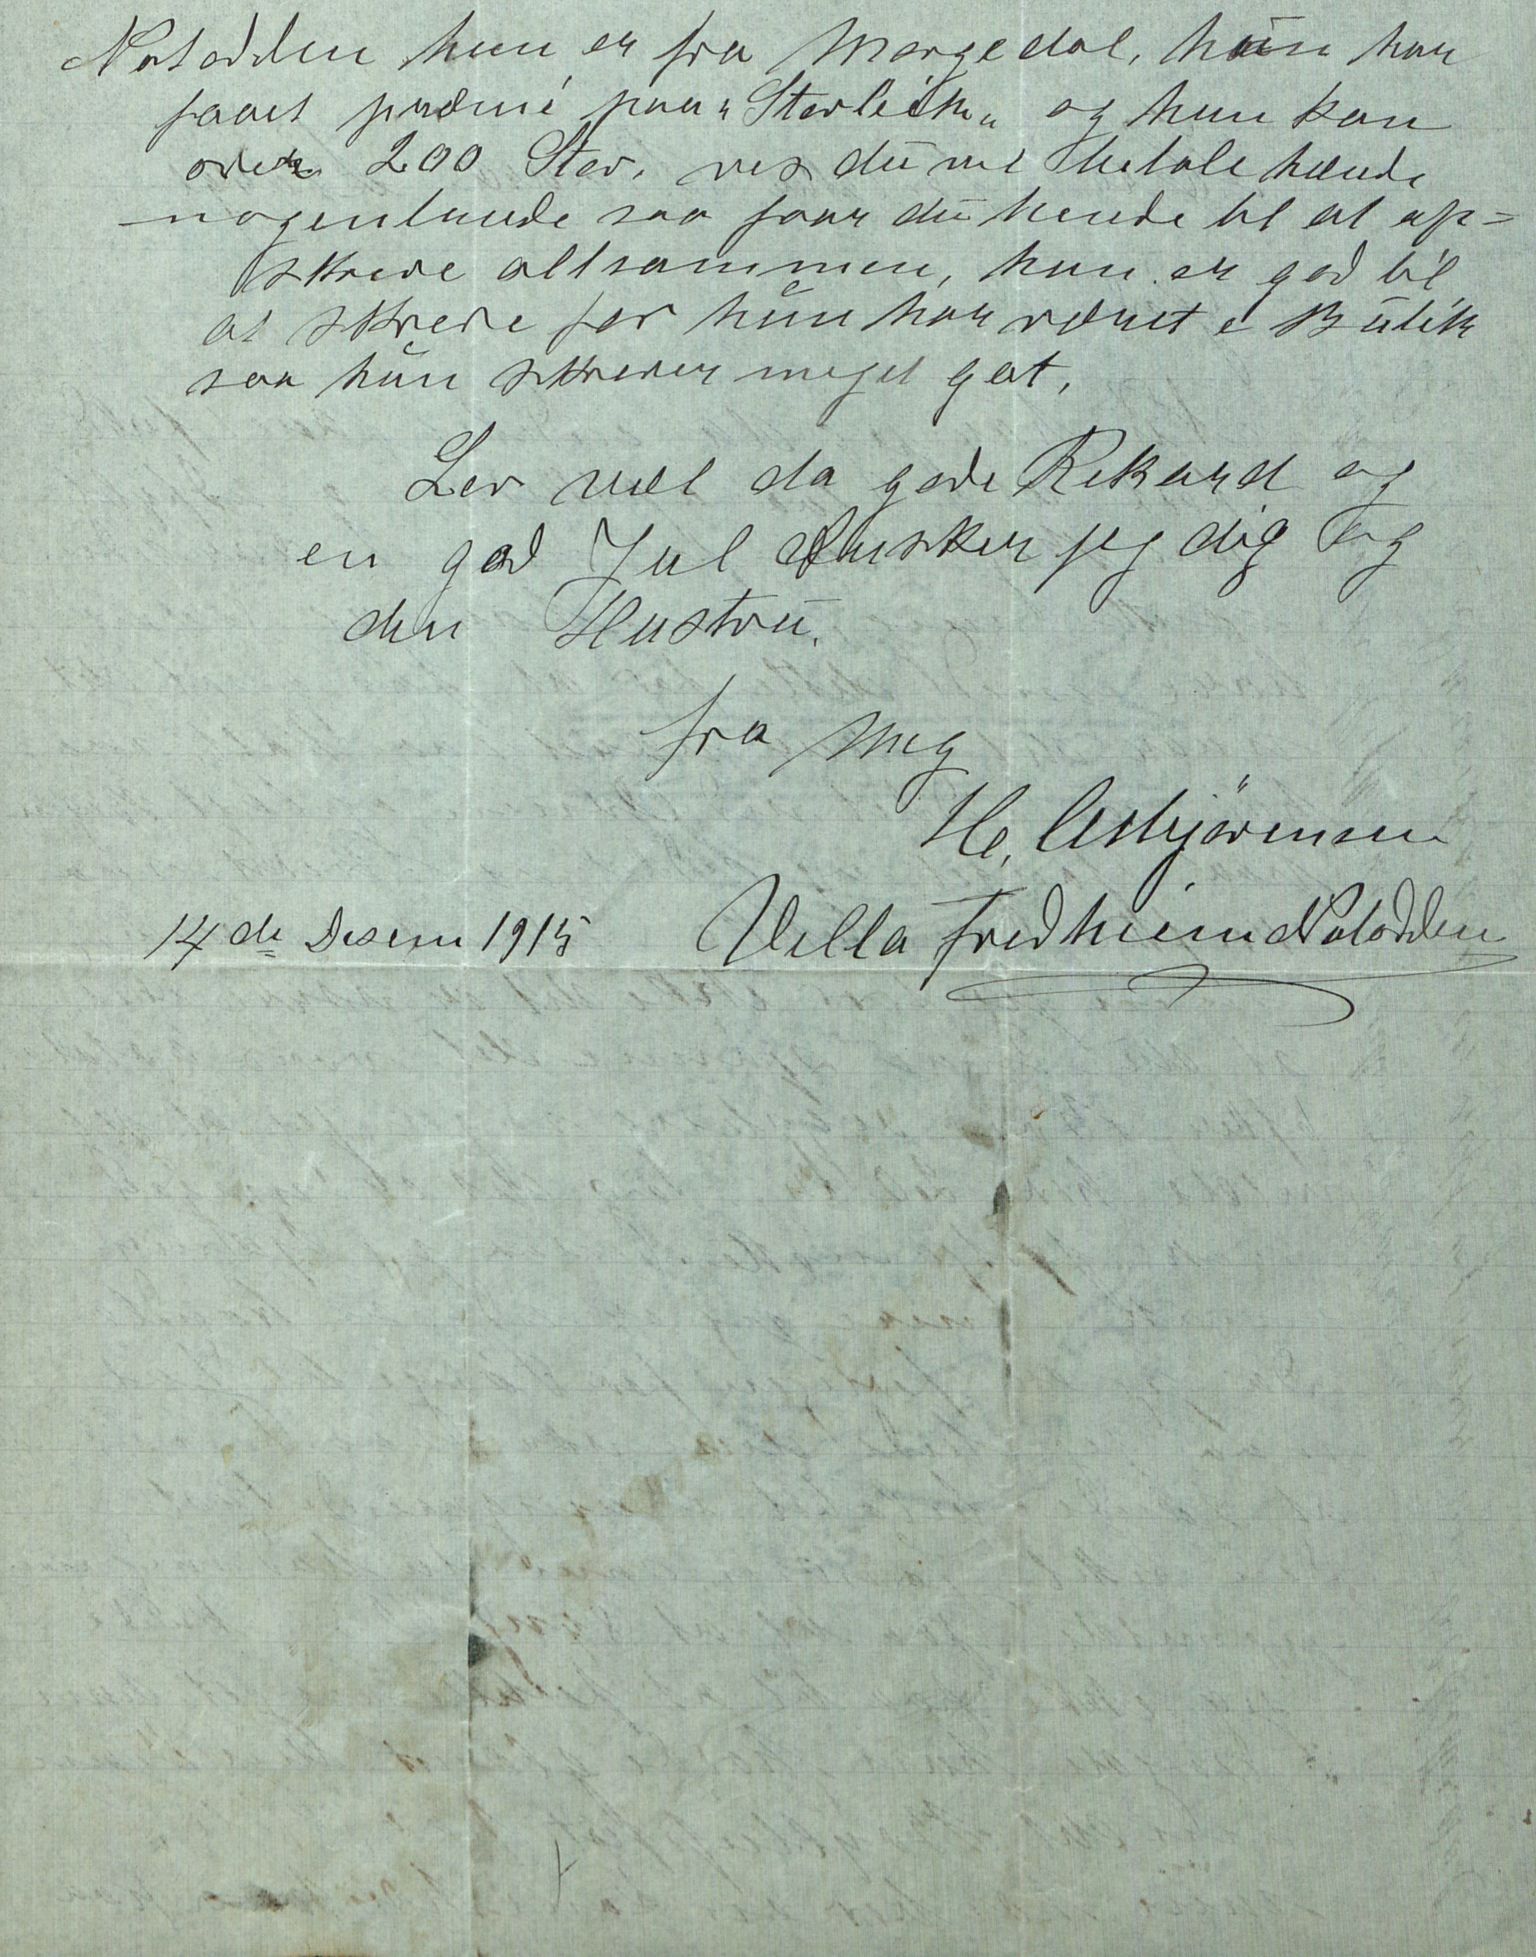 Notodden hun er fra Morgedal, hun har
faaet præmi paa "Stevleik" og hun kan
over 200 Stev. ves du vel betale hænde
nogenlunde saa faar du hende til at op=
skreve altsammen, hun er god til
at skreve for hun har været e Butik
saa hun skrever meget got,
Lev væl da gode Rekard og
en god Jul ønsker jeg dig og
din Hustru.
fra meg
H, Asbjörensen
14 de Desem 1915 Vella Fredheim Notodden